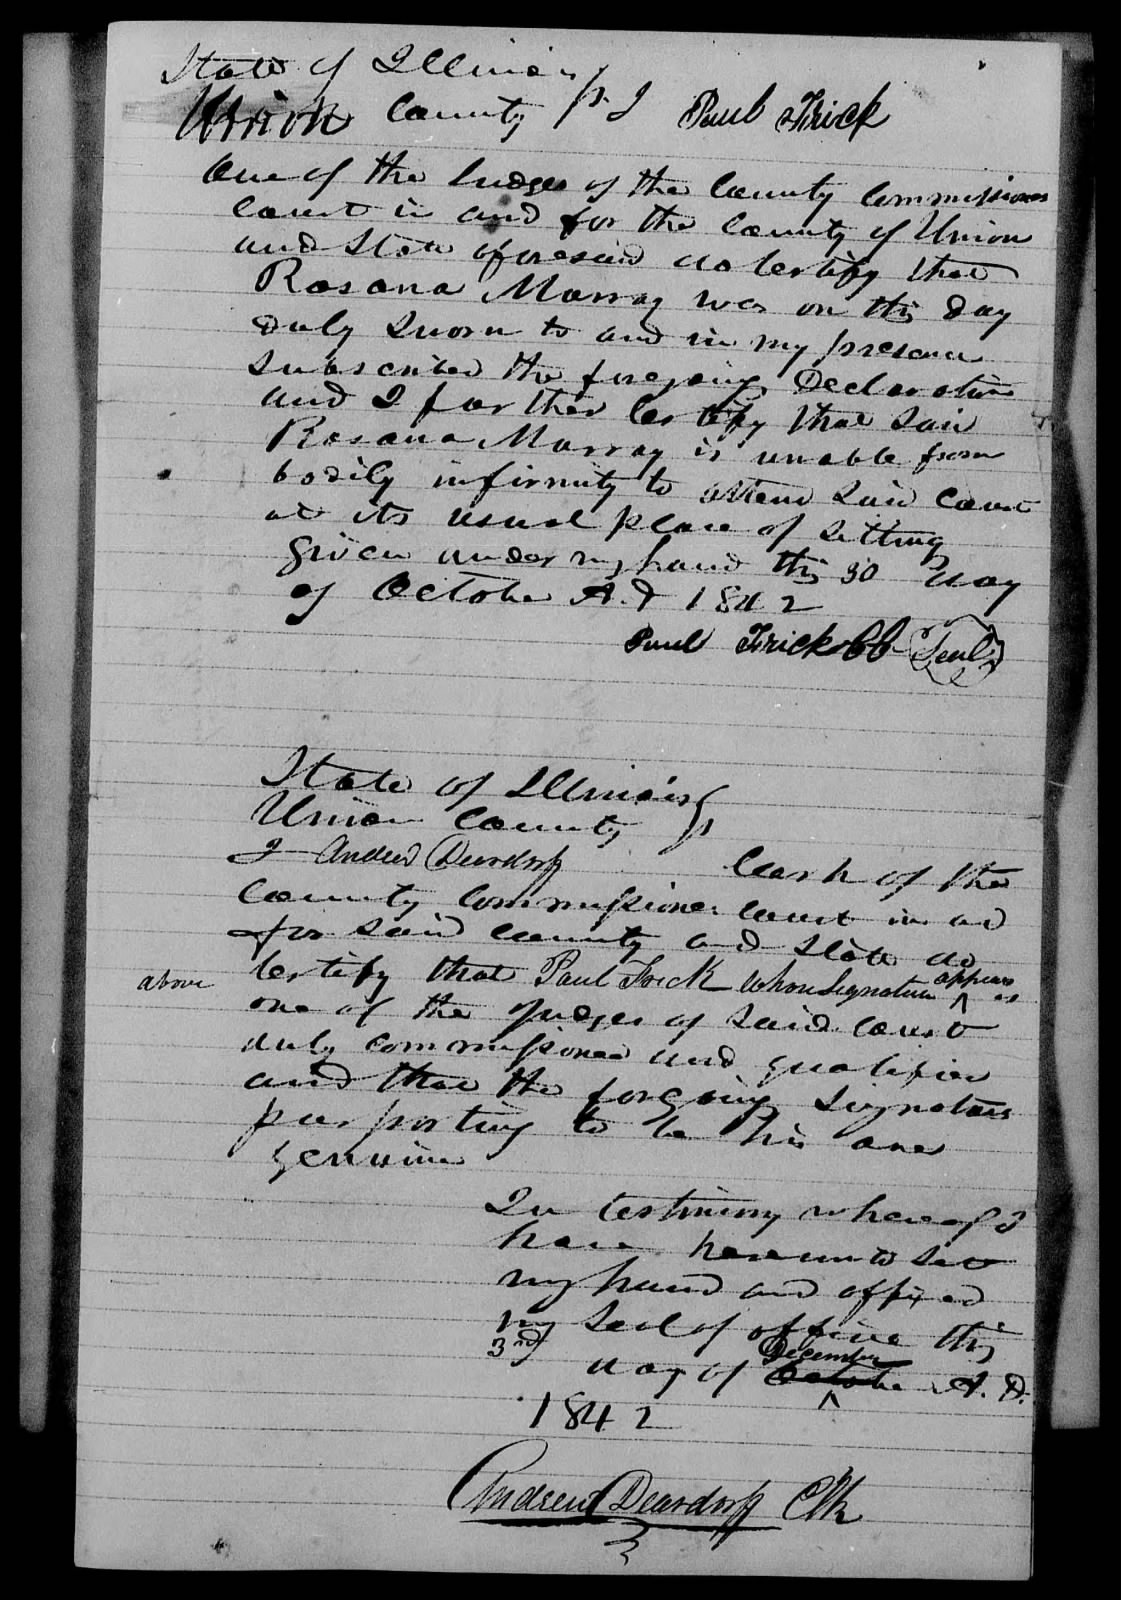 State of Illinois
Union County } ss I Paul Frick
One of the Judges of the County Commissioners
Court in and for the County of Union
and State aforesaid do certify that
Rosana Murray was on this day
duly sworn to and in my presence
subscribed the foregoing Declaration
and I further certify that said
Rosana Murray is unable from
bodily infirmity to attend said Court
at its usual place of setting
given under my hand this 30 day
of October A.D 1842
Paul Frick CC Seal
State of Illinois
Union County } ss
I Andrew Deardorff Clerk of the
County Commissioner Court in and
for said County and State do
certify that Paul Frick whose signature appears
above as
one of the Judges of said Court
duly commissioned and qualified
and that the forgoing signature
purporting to be his are
genuine
In testimony whereof I
have hereunto set
my hand and affixed
my seal of office this
3rd day of October December A. D.
1842
Andrew Deardorff Clk